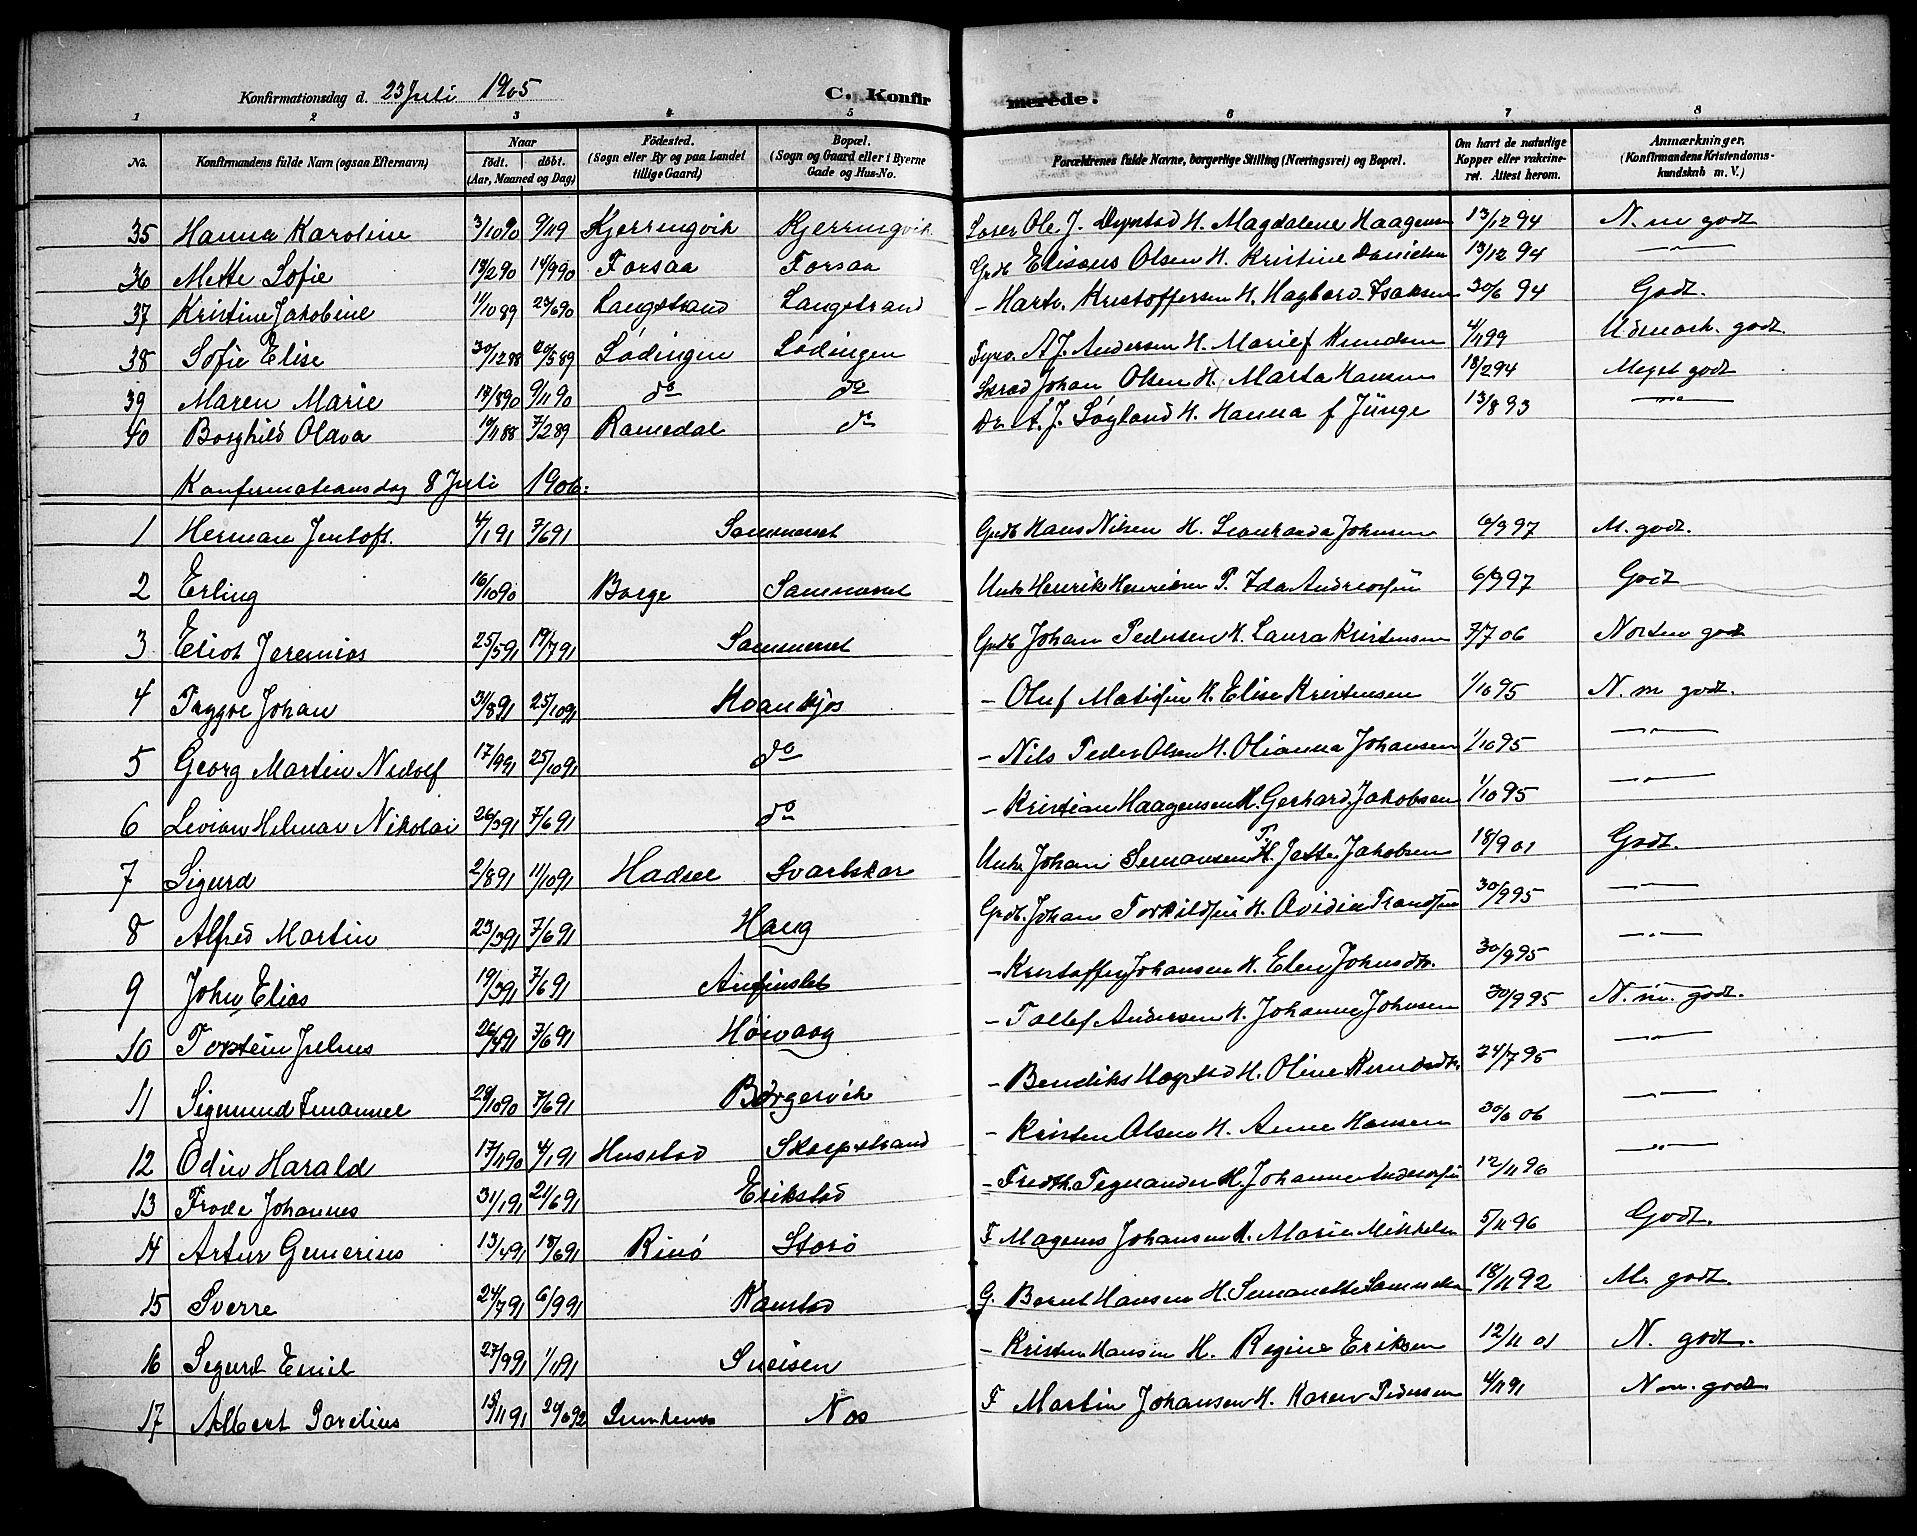 Konfirmationsdag d. 23 Juli 1905 C. Konfirmerede.
1 2 3 4 5 6 7 8
No. Konfirmandens fulde Navn (ogsaa Efternavn) Naar födt. döbt. (Aar, Maaned og Dag) Födested. (Sogn eller By og paa Landet tillige Gaard) Bopæl. (Sogn og Gaard eller i Byerne Gade og Hus-No. Forældrenes fulde Navne, borgerlige Stilling (Næringsvei) og Bopæl. Om havt de naturlige Kopper eller vakcineret. Attest herom. Anmærkninger. (Konfirmandens Kristendomskundskab m. V.)
35 Hanna Karoline 3/10 90 9/11 9 Kjerringvik Kjerringvik Ole J. H. Magdalene Haagensen 13/12 94 N. m godt
36 Mette Sofie 14/9 90 Forsaa Forsaa Grdb Eliseus Olsen H. Kristine Danielsen 13/12 94 —"—
37 Kristine Jakobine 11/10 89 29/6 90 Langstrand Langstrand - Hartv. Kristoffersen H. Hagbard. Isaksen 30/6 94 Godt.
38 Sofie Elise 30/12 88 20/5 89 Lødingen Lødingen A J. Andersen H. Marie f Knudsen 4/11 99 Udmærk. godt
39 Maren Marie 17/8 90 9/11 90 do do Johan Olsen H. Marta Hansen 18/2 94 Meget godt
40 Borghild Olava 19/11 88 7/2 89 Ramsdal do Dr. A. J. Søgland H. Hanna f Jünge 13/8 93 —"—
Konfirmationsdag 8 Juli 1906:
1 Herman Jentoft. 4/1 91 7/6 91 Sommerset Grdb Hans Nilsen H. Leonharda Johnsen 6/9 97 M. godt.
2 Erling 16/10 90 Borge Sommerset Unke Henrik Henriksen P. Ida Andreasson 6/9 97 Godt
3 Eliot Jeremias 25/5 91 19/7 91 Sommerset Grdb Johan Pedersen H. Laura Kristensen 7/7 06 Nesten godt
4 Tryggve Johan 31/8 91 25/10 91 Kvankjos - Oluf Matisen H. Elise Kristensen 1/10 95 N. m godt.
5 Georg Martin Nidolf 17/9 91 25/10 91 do - Nils Peder Olsen H. Olianna Johansen 1/10 95 —"—
6 Livian Hilmar Nikolai 26/3 91 7/6 91 do - Kristian Haagensen H. Gerhard. Jakobsen 1/10 95 —"—
7 Sigurd 2/8 91 11/10 91 Hadsel Svartskar Unke Johan Simonsen P. H. Jette Jakobsen 18/9 01 Godt.
8 Alfred Martin 23/3 91 7/6 91 Haug Grdb. Johan Torkildsen H. Ovidia 30/9 95 —"—
9 John Elias 19/3 91 7/6 91 - Kristoffer Johansen H. Elen Johnsdtr. 30/9 95 —"—
10 Torstein Julius 26/4 91 7/6 91 Høivaag - Tollef Andersen H. Johanne Johnsen 30/9 95 N. m. godt.
11 Sigmund Imanuel 29/10 90 7/6 91 Børgesvik - Bendiks H. Oline 24/7 95 —"—
12 Odin Harald 17/11 90 4/1 91 Husstad Skorpstrand - Kristen Olsen H. Anne Hansen 30/6 06 —"—
13 Frode Johannes 31/1 91 21/6 91 Erikstad - Fredrk. Tegnander H. Johanne Anderson 12/11 96 —"—
14 Artur Gemerius 13/4 91 18/6 91 Rinø Storø F Magnus Johansen H. Marie Mikkelsen 5/11 96 Godt.
15 Sverre 24/7 91 6/9 91 Kanstad G. Bernt Hansen H. Simonette Samuelsen 18/11 92 M. godt.
16 Sigurd Emil 27/9 91 1/11 91 Sneisen - Kristen Hansen H. Regine Eriksen 12/11 01 N. godt.
17 Albert Parelius 19/11 91 24/6 92 Nes F Martin Johansen H. Karen Pedersen 4/11 91 N m. godt